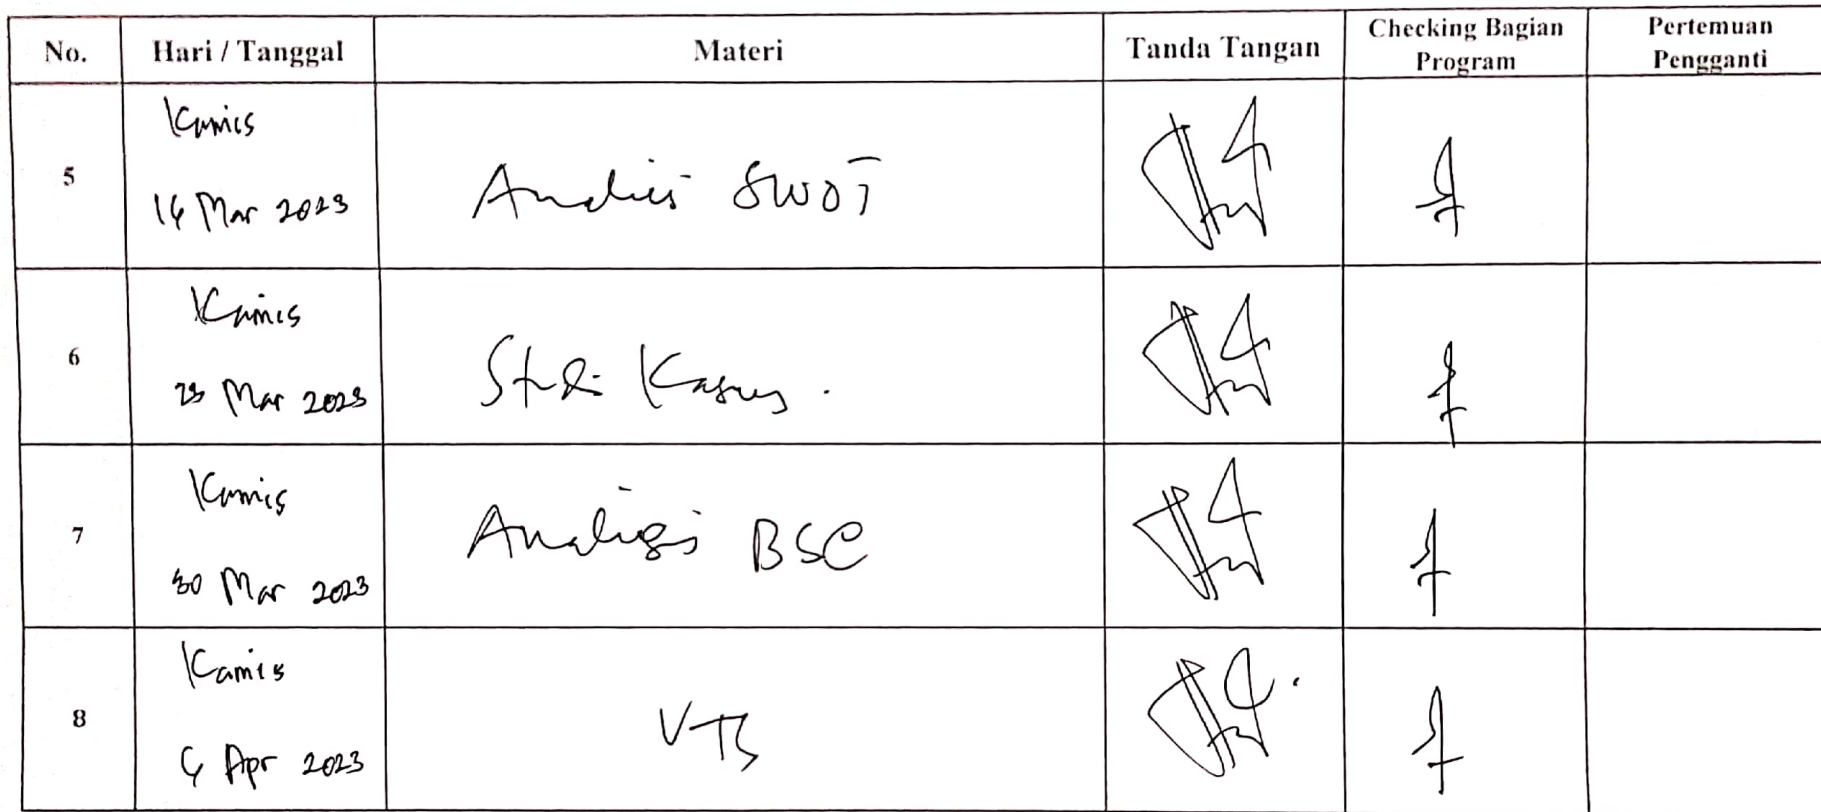 No. Hari / Tanggal Materi Tanda Tangan Checking Bagian Program Pertemuan Pengganti
5 Kamis 16 Mar 2023 Analisis SWOT
6 Kamis 23 Mar 2023 Studi Kasus .
7 Kamis 30 Mar 2023 Analisis BSC
8 Kamis 6 Apr 2023